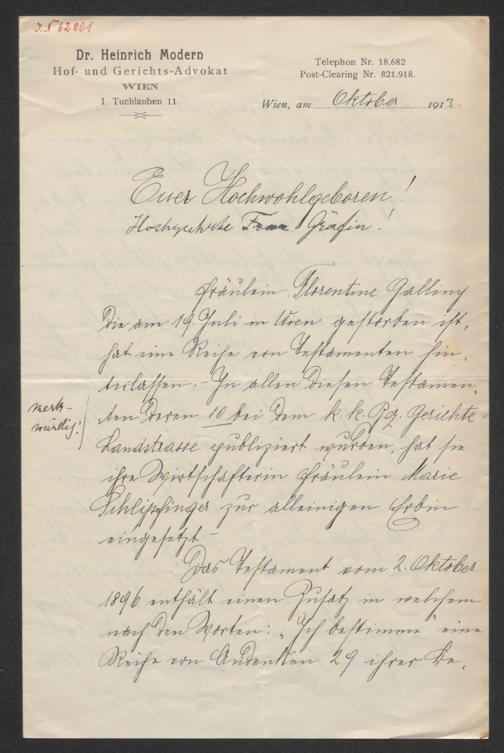 I.N 62001
Dr. Heinrich Modern
Hof- und Gerichts-Advokat
WIEN
I. Tuchlauben 11.
Telephon Nr. 18.682
Post-Clearing Nr. 821.918.
Wien, am Oktober 1913.
Euer Hochwohlgeboren!
Hochgeehrte Frau Gräfin!
Fräulein Florentine Galliny
die am 19 Juli in Wien gestorben ist,
hat eine Reihe von Testamenten hin-
terlassen. - In allen diesen Testamen-
ten deren 10 bei dem k. k. Bez. Gerichte
Landstrasse publiziert wurden, hat sie
merk-
würdig!
ihre Wirtschafterin Fräulein Marie
Schlipfinger zur alleinigen Erbin
eingesetzt -
Das Testament vom 2. Oktober
1896 enthält einen Zusatz in welchem
nach den Worten: „Ich bestimme" eine
Reihe von Andenken 29 ihrer Be-